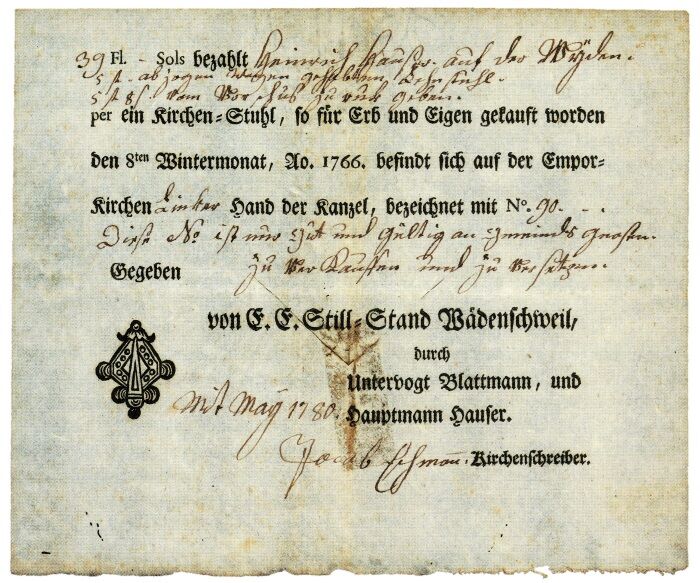 39 Fl. - Sols bezahlt Heinrich Hauser auf der Wyden.
5 ß. abzogen wegen gehabtem Lehnstuhl.
5 ß 8 vom Vorschus zu ruk geben.
per ein Kirchen-Stuhl, so für Erb und Eigen gekauft worden
den 8ten Wintermonat, Ao. 1766. befindt sich auf der Empor-
Kirchen Linker Hand der Kanzel, bezeichnet mit No. 90. - -
Diese No ist nur gut und gültig an gmeinds gnosen.
Gegeben zu verkauffen und zu versetzen.
von E. E. Still-Stand Wädenschweil,
durch
Untervogt Blattmann, und
Mit May 1780. Hauptmann Hauser.
Jacob Kirchenschreiber.